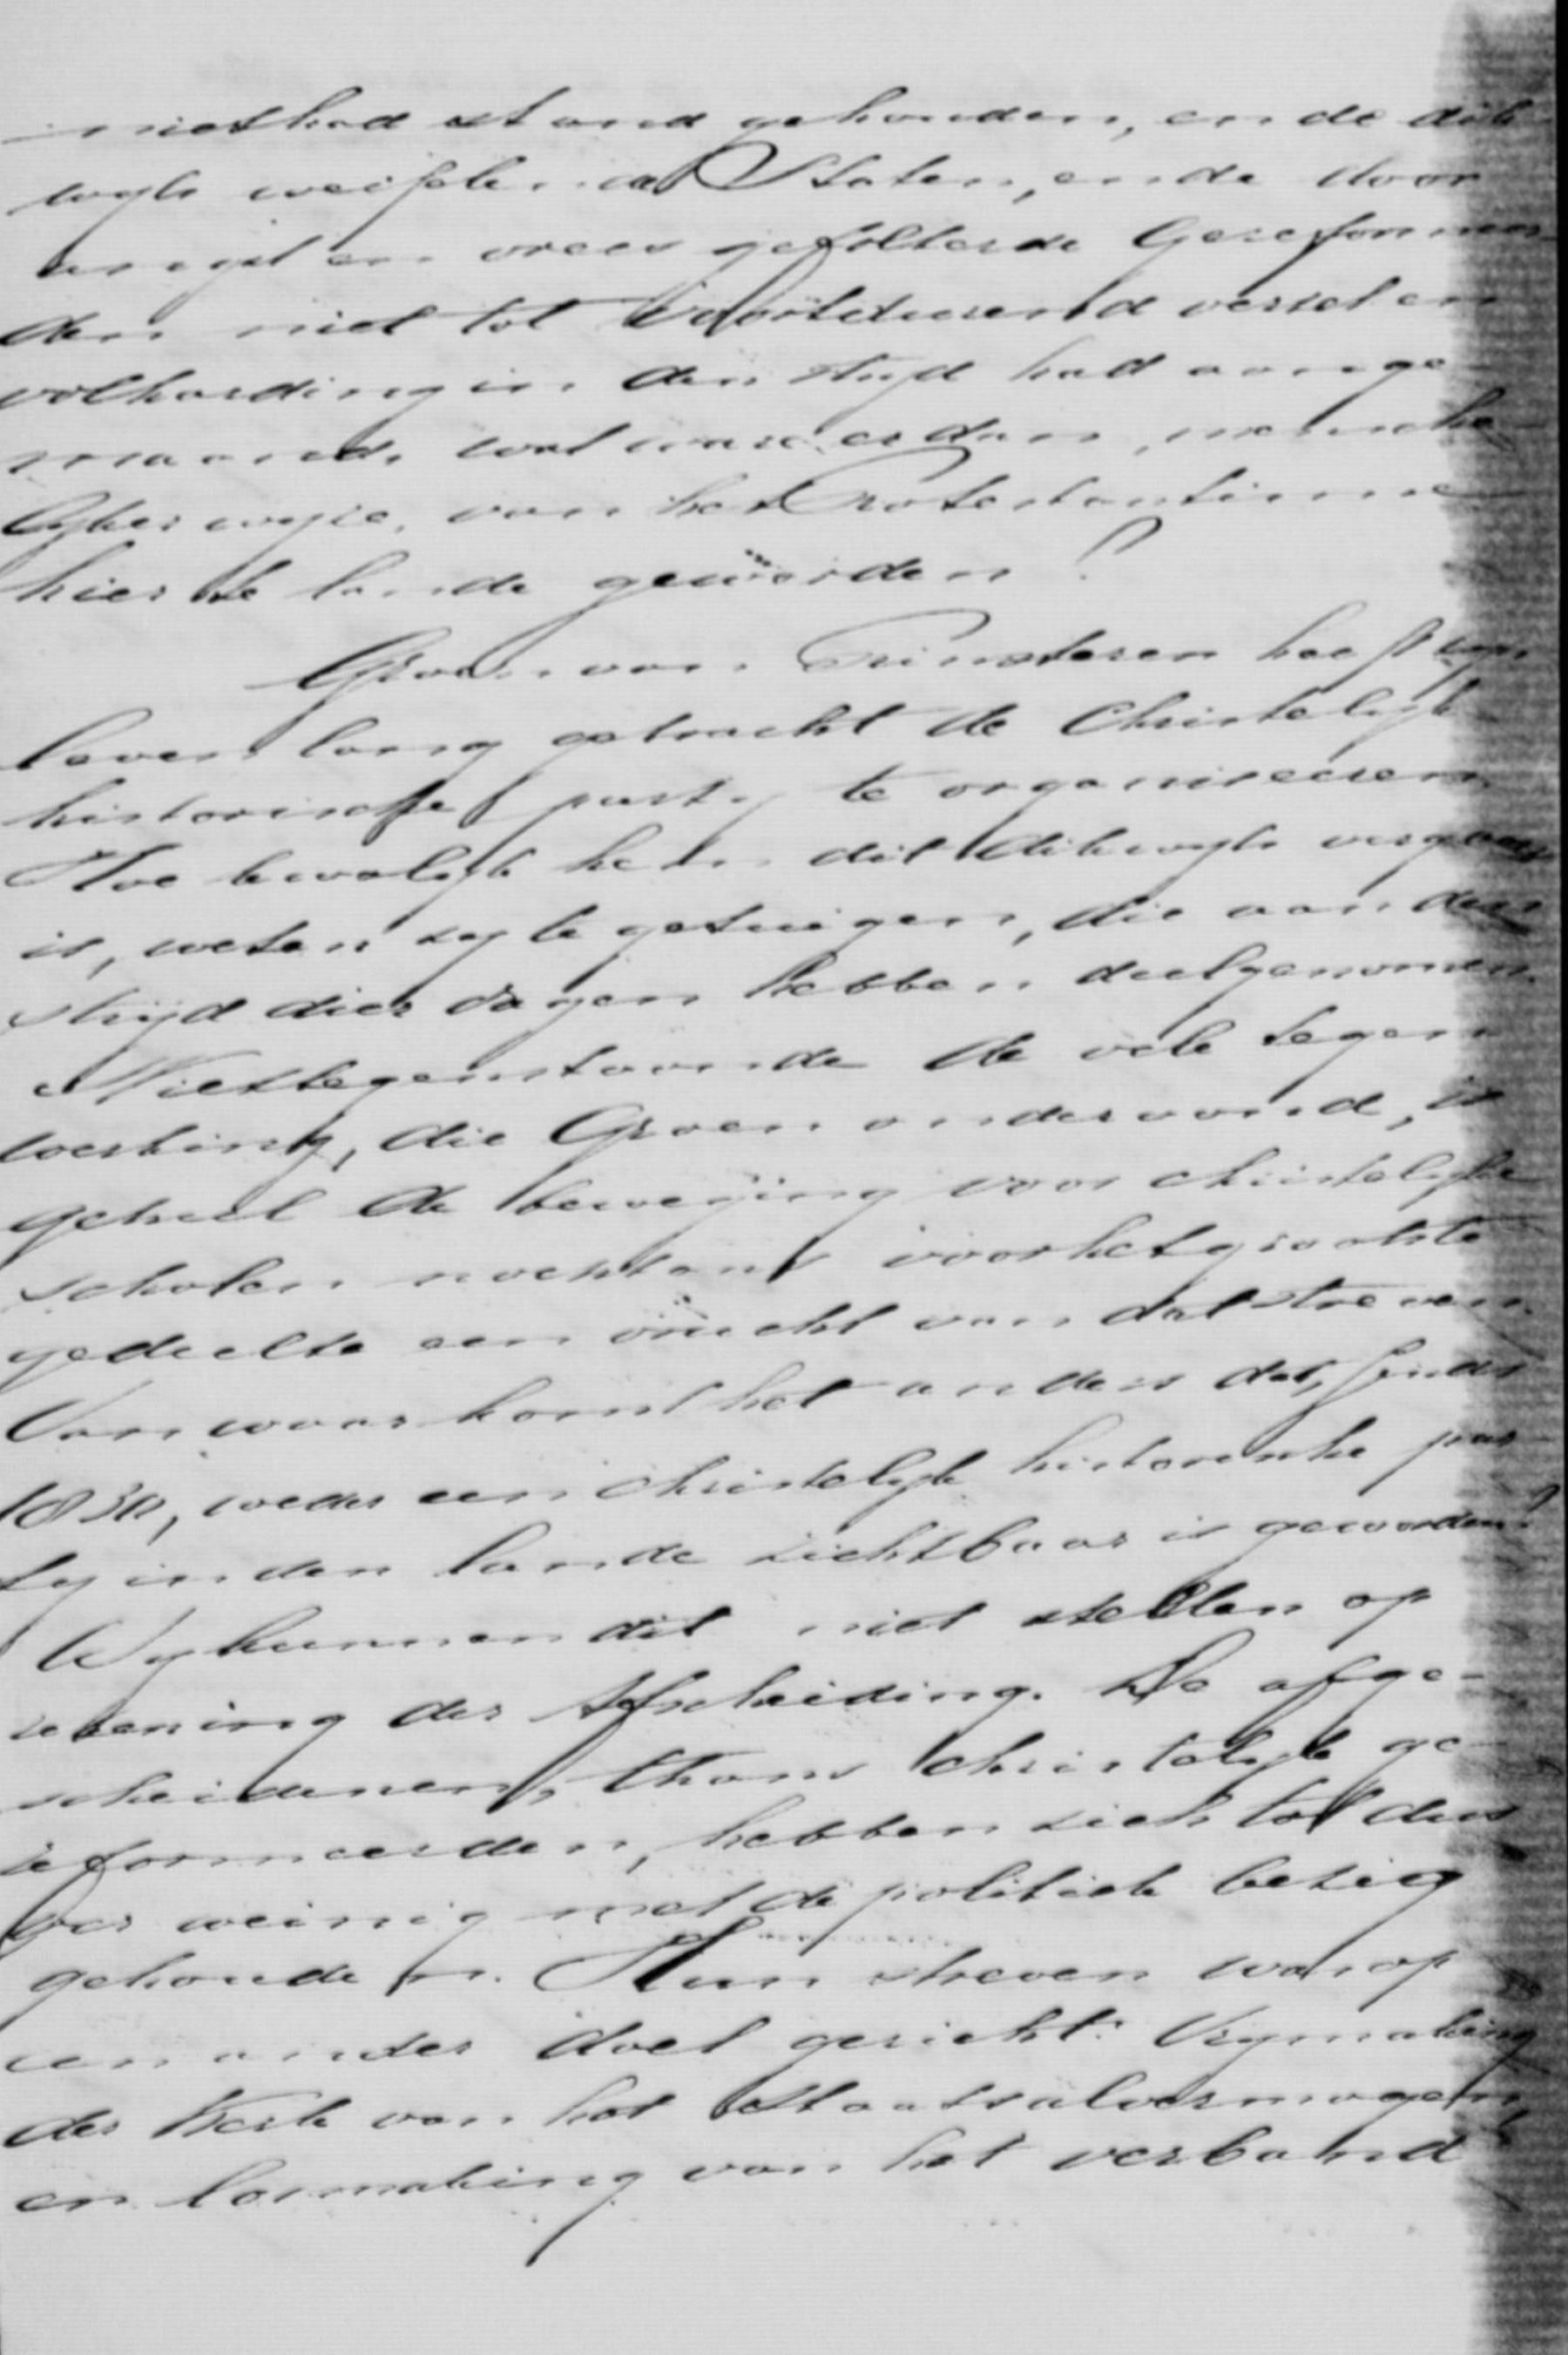 niet had stand gehouden, en de dik
wyls weifelende Staten, en de door
angst en vrees gefolterde Gereformeer
den niet tot voortdurend verzet en
volharding in den stryd had aange
maand, wat ware er dan, mensche
lykerwyze, van het Protestantisme
hier te lande geworden?
Groen van Prinsteren heeft zyn
leven lang getracht de Christelyk
historische party te organiseeren.
Hoe kwalyk hem dit dikwyls vergaan
is, weten zy te getuigen, die aan den
stryd dier dagen hebben deelgenomen.
Niettegenstaande de vele tegen
werking, die Groen ondervond, is
geheel de beweging voor christelyke
scholen nochtans voor het grootste
gedeelte een vrucht van dat streven.
Van waar komt het anders dat, sinds
1830, weder een christelyk historische par
ty in den lande zichtbaar is geworden?
Wy kunnen dit niet stellen op
rekening der Afscheiding. De afge-
scheidenen, thans christelyk ge
reformeerden, hebben zich tot dus
ver weinig met de politiek bezig
gehouden. Hun streven was op
een ander doel gericht: Vrymaking
der Kerk van het Staatsalvermogen,
en losmaking van het verband